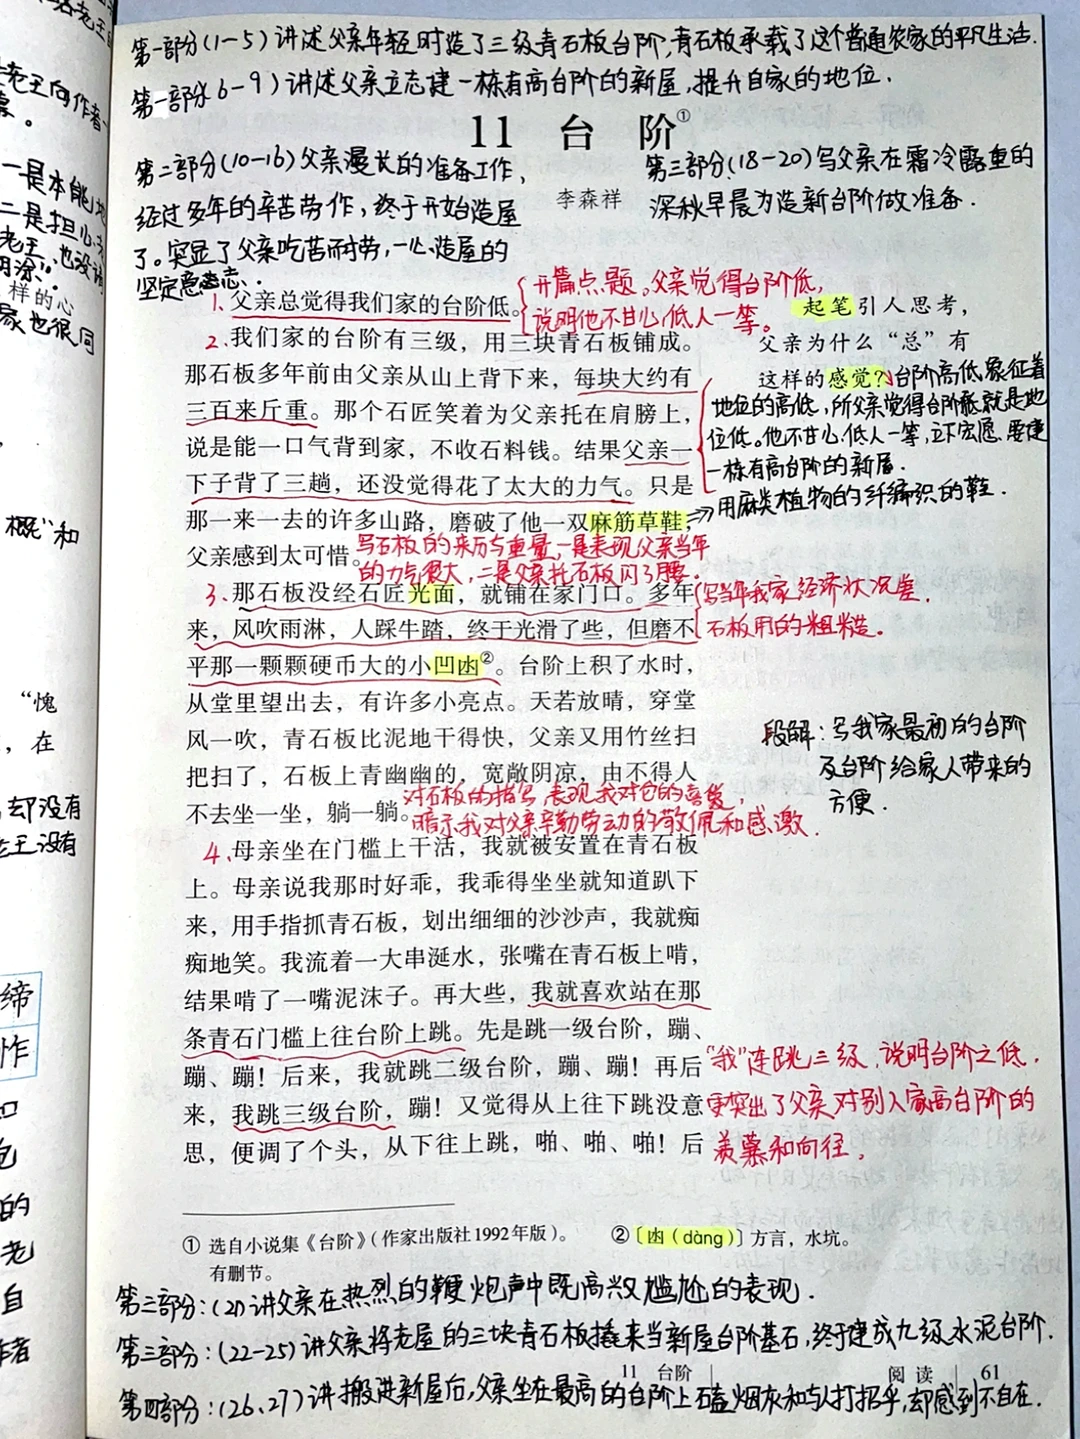 第一部分(1-5)讲述父亲年轻时造了三级青石板台阶,青石板承载了这个普通农家的平凡生活.
第一部分(6-9)讲述父亲立志建一栋有高台阶的新屋,提升自家的地位.
11 台 阶①
李森祥
第二部分(10-16)父亲漫长的准备工作,
经过多年的辛苦劳作,终于开始造屋
了。突显了父亲吃苦耐劳,一心造屋的
坚定意志.
第三部分(18-20)写父亲在霜冷露重的
深秋早晨为造新台阶做准备.
1、父亲总觉得我们家的台阶低。
开篇点题。父亲觉得台阶低,
说明他不甘心低人一等。
起笔引人思考，
父亲为什么“总”有
这样的感觉?
台阶高低象征着
地位的高低,所父亲觉得台阶低就是地
位低。他不甘心低人一等,立下宏愿,要建
一栋有高台阶的新屋.
2、我们家的台阶有三级，用三块青石板铺成。
那石板多年前由父亲从山上背下来，每块大约有
三百来斤重。那个石匠笑着为父亲托在肩膀上，
说是能一口气背到家，不收石料钱。结果父亲一
下子背了三趟，还没觉得花了太大的力气。只是
那一来一去的许多山路，磨破了他一双麻筋草鞋，
父亲感到太可惜。
用麻类植物的纤编织的鞋.
写石板的来历与重量,一是表现父亲当年
的力气很大,二是父亲托石板闪了腰.
3、那石板没经石匠光面，就铺在家门口。多年
来，风吹雨淋，人踩牛踏，终于光滑了些，但磨不
平那一颗颗硬币大的小凹凼②。台阶上积了水时，
从堂里望出去，有许多小亮点。天若放晴，穿堂
风一吹，青石板比泥地干得快，父亲又用竹丝扫
把扫了，石板上青幽幽的，宽敞阴凉，由不得人
不去坐一坐，躺一躺。
写当年我家经济状况差.
石板用的粗糙.
段解:写我家最初的台阶
及台阶给家人带来的
方便.
对石板的描写,表现我对它的喜爱,
暗示我对父亲辛勤劳动的敬佩和感激.
4、母亲坐在门槛上干活，我就被安置在青石板
上。母亲说我那时好乖，我乖得坐坐就知道趴下
来，用手指抓青石板，划出细细的沙沙声，我就痴
痴地笑。我流着一大串涎水，张嘴在青石板上啃，
结果啃了一嘴泥沫子。再大些，我就喜欢站在那
条青石门槛上往台阶上跳。先是跳一级台阶，蹦、
蹦、蹦！后来，我就跳二级台阶，蹦、蹦！再后
来，我跳三级台阶，蹦！又觉得从上往下跳没意
思，便调了个头，从下往上跳，啪、啪、啪！后
“我”连跳三级,说明台阶之低.
更突出了父亲对别人家高台阶的
羡慕和向往.
① 选自小说集《台阶》（作家出版社1992年版）。
有删节。
②〔凼（dàng）〕方言，水坑。
第三部分:(21)讲父亲在热烈的鞭炮声中既高兴又尴尬的表现.
第三部分:(22-25)讲父亲将老屋的三块青石板撬来当新屋台阶基石,终于建成九级水泥台阶.
11 台阶
阅 读 61
第四部分:(26、27)讲搬进新屋后,父亲坐在最高的台阶上磕烟灰和与人打招呼,却感到不自在.
老王向作者
一是本能地
二是担心
样的心
家也很同
概”和
“愧
，在
却没有
老王没有
缔
作
的
老
自
作者